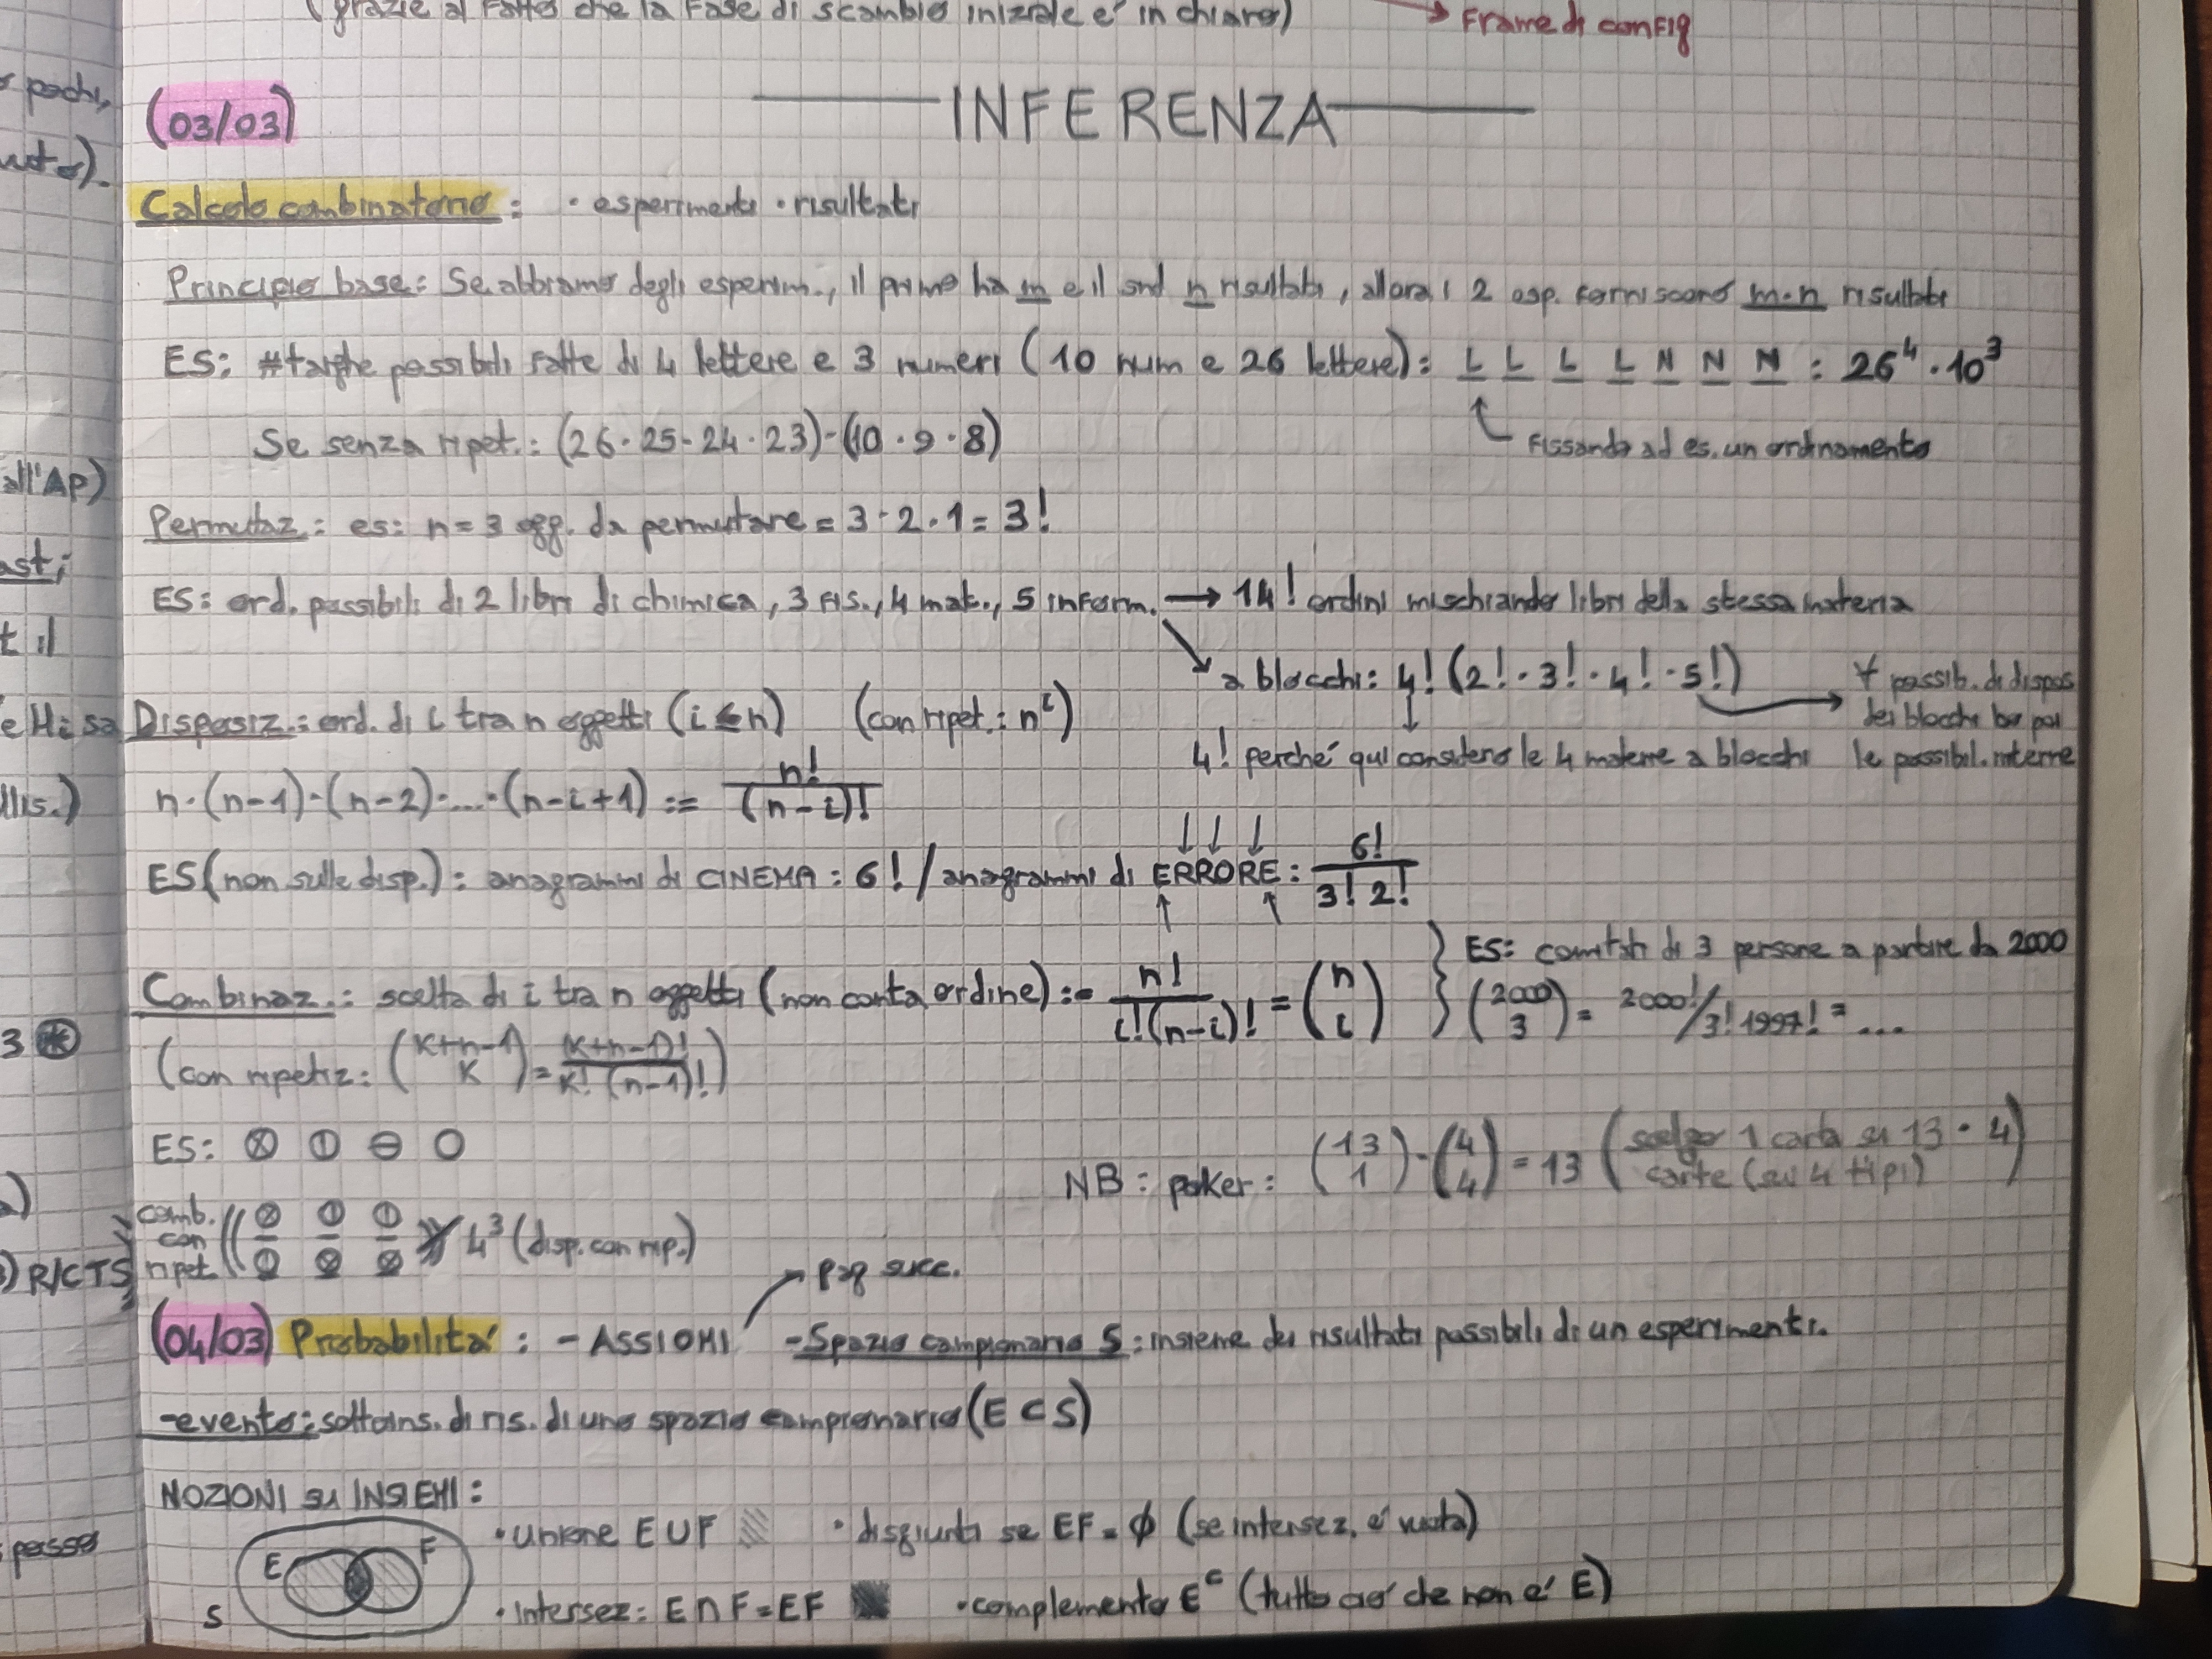 (grazie al fatto che la fase di scambio iniziale e' in chiaro)
→ Frame di config
pochi,
(03/03)
INFERENZA
Calcolo combinatorio: · esperimenti · risultati
Principio base: Se abbiamo degli esperim., il primo ha m e il snd n risultati, allora i 2 esp. forniscono m·n risultati
ES: #targhe possibili fatte di 4 lettere e 3 numeri (10 num e 26 lettere): L L L L N N N : 26⁴·10³
Se senza ripet.: (26·25·24·23)·(10·9·8)
fissando ad es. un ordinamento
all'AP)
Permutaz.: es: n=3 ogg. da permutare = 3·2·1 = 3!
ast;
ES: ord. possibili di 2 libri di chimica, 3 fis., 4 mat., 5 inform. → 14! ordini mischiando libri della stessa materia
t il
a blocchi: 4! (2!·3!·4!·5!) → ∀ possib. di dispos
dei blocchi ho poi
le possibil. interne
4! perché qui considero le 4 materie a blocchi
e Hi sa
Disposiz.: ord. di i tra n oggetti (i≤n) (con ripet.: nⁱ)
llis.)
n·(n-1)·(n-2)·...·(n-i+1) := n!/(n-i)!
ES (non sulle disp.): anagrammi di CINEMA: 6! / anagrammi di ERRORE: 6!/3! 2!
Combinaz.: scelta di i tra n oggetti (non conta ordine) := n!/i!(n-i)! = (n i) } ES: comitati di 3 persone a partire da 2000
(2000 3) = 2000!/3! 1997! = ...
3 *
(con ripetiz: (K+n-1 K) = (K+n-1)!/K! (n-1)!)
ES: ⊗ ⦶ ⊖ ○
NB: poker: (13 1)·(4 4) = 13 (scelgo 1 carta su 13 · 4
carte (su 4 tipi))
comb.
con
ripet.
4³ (disp. con rip.)
R/CTS
pag succ.
(04/03) Probabilita': - ASSIOMI - Spazio campionario S: insieme dei risultati possibili di un esperimento.
- evento: sottoins. di ris. di uno spazio campionario (E⊂S)
NOZIONI su INSIEMI:
E F S
· unione E∪F · disgiunti se EF = ∅ (se intersez. e' vuota)
passo
· intersez: E∩F = EF · complemento Eᶜ (tutto cio' che non e' E)